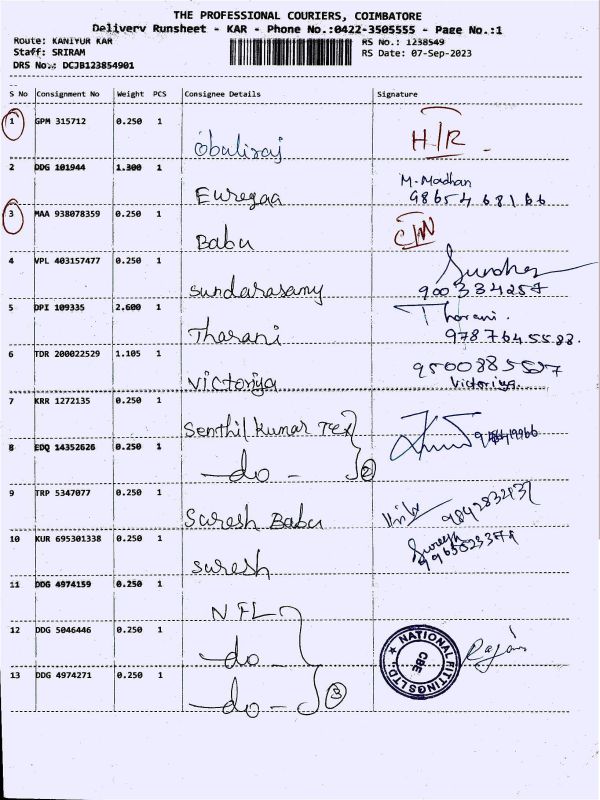 THE PROFESSIONAL COURIERS, COIMBATORE
Delivery Runsheet - KAR - Phone No.:0422-3505555 - Page No.:1
Route: KANIYUR KAR
Staff: SRIRAM
DRS No.: DCJB123854901
RS No.: 1238549
RS Date: 07-Sep-2023
S No Consignment No Weight PCS Consignee Details Signature
1 GPM 315712 0.250 1 Obaliraj H/R
2 DDG 101944 1.300 1 Euregaa M. Madhan
98654 68166
3 MAA 938078359 0.250 1 Babu
4 VPL 403157477 0.250 1 Sundarasamy
5 DPI 109335 2.600 1 Tharani Tharani.
9787645588.
6 TDR 200022529 1.105 1 Victoriya
Victoriya.
7 KRR 1272135 0.250 1 Senthil Kumar Tex
8 EDQ 14352626 0.250 1 - do - 2
9 TRP 5347077 0.250 1 Suresh Babu
10 KUR 695301338 0.250 1 Suresh Suresh
11 DDG 4974159 0.250 1 NFL
12 DDG 5046446 0.250 1 - do -
13 DDG 4974271 0.250 1 - do - 3
NATIONAL FITTINGS LTD.
CBE